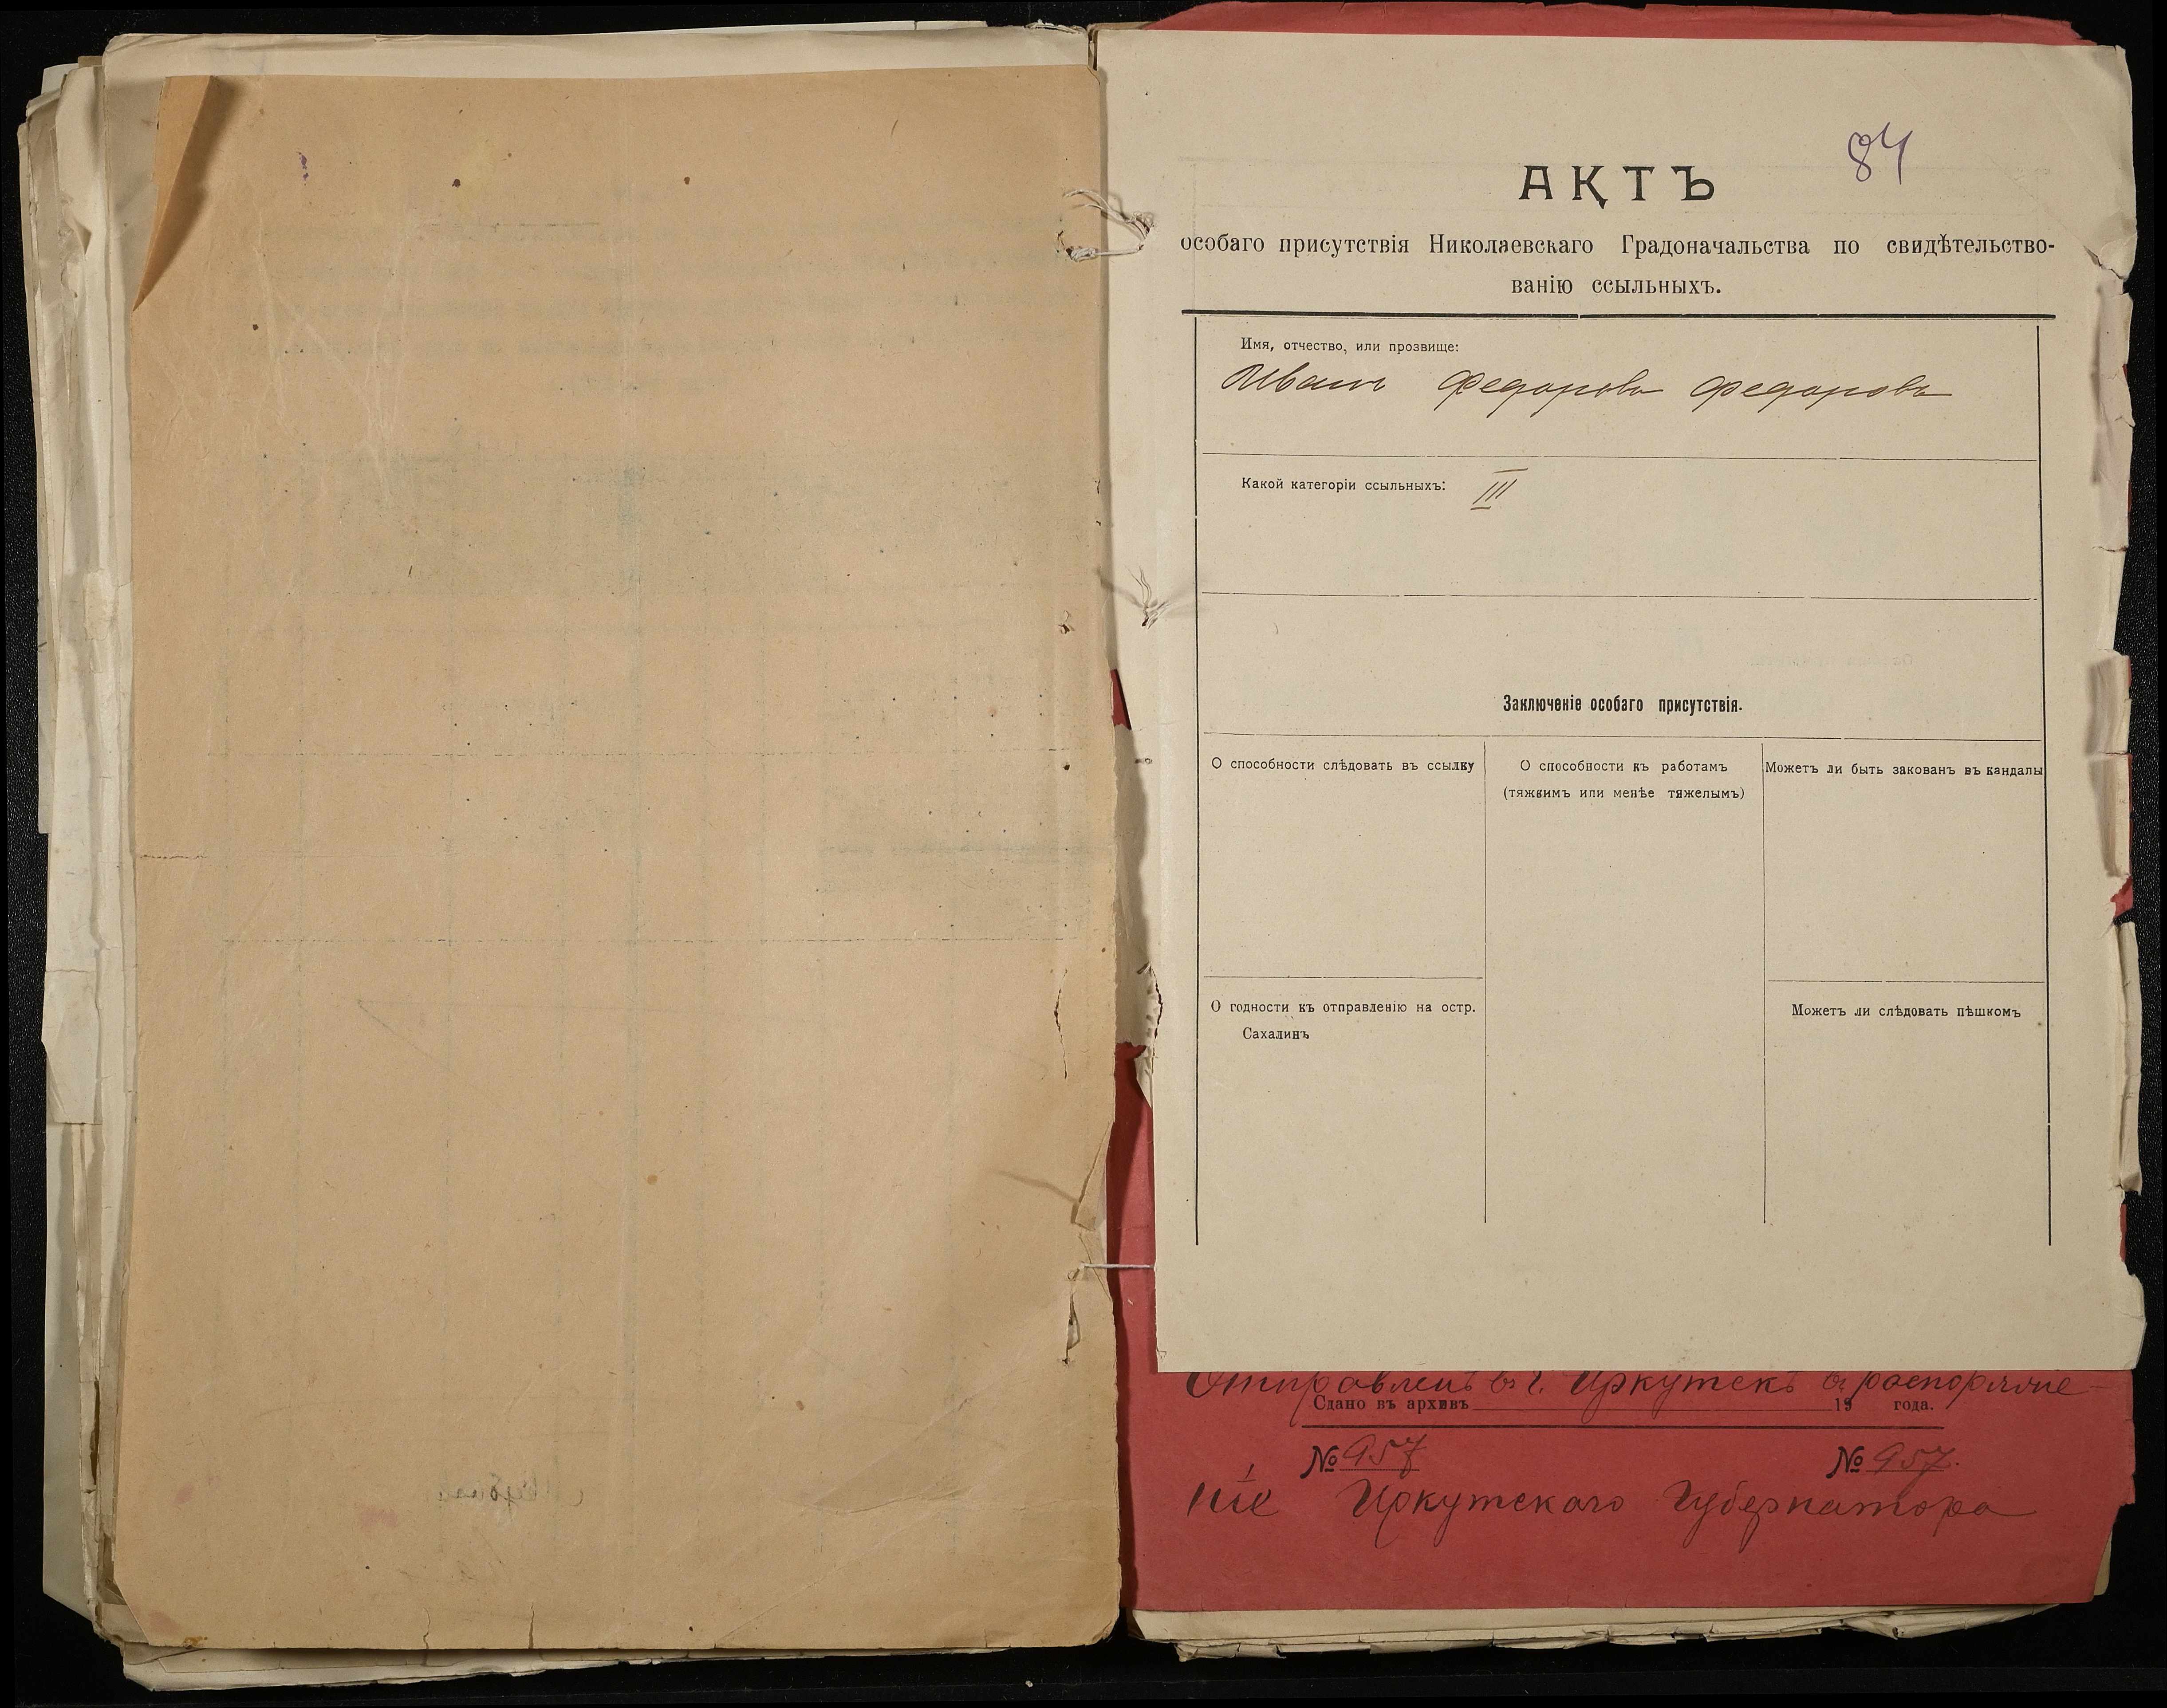 84
АКТЪ
особаго присутствія Николаевскаго Градоначальства по свидѣтельство-
ванію ссыльныхъ.
Имя, отчество, или прозвище:
Иванъ Федоровъ Федоровъ
Какой категоріи ссыльныхъ: III
Заключеніе особаго присутствія.
О способности слѣдовать въ ссылку
О способности къ работамъ
(тяжкимъ или менѣе тяжелымъ)
Можетъ ли быть закованъ въ кандалы
О годности къ отправленію на остр.
Сахалинъ
Можетъ ли слѣдовать пѣшкомъ
Отправленъ въ г. Иркутскъ въ распоряже-
Сдано въ архивъ 19 года.
№ 957 № 957.
ніе Иркутскаго Губернатора